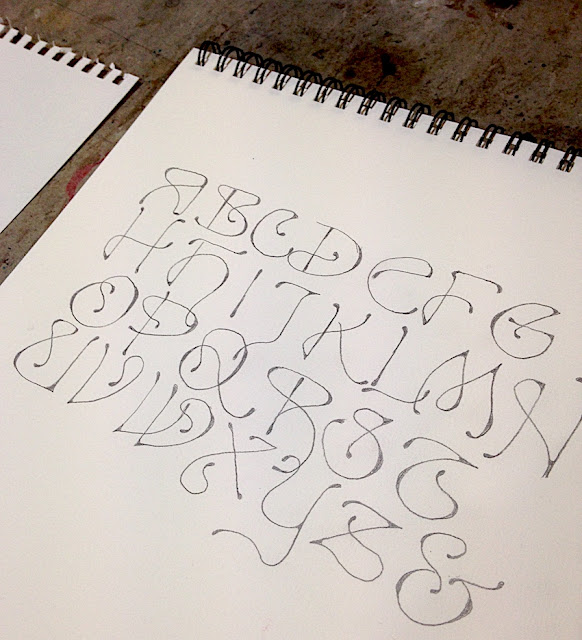 A B C D E F G
H H I J K L M N
O P Q R S T
U V W X Y Z &